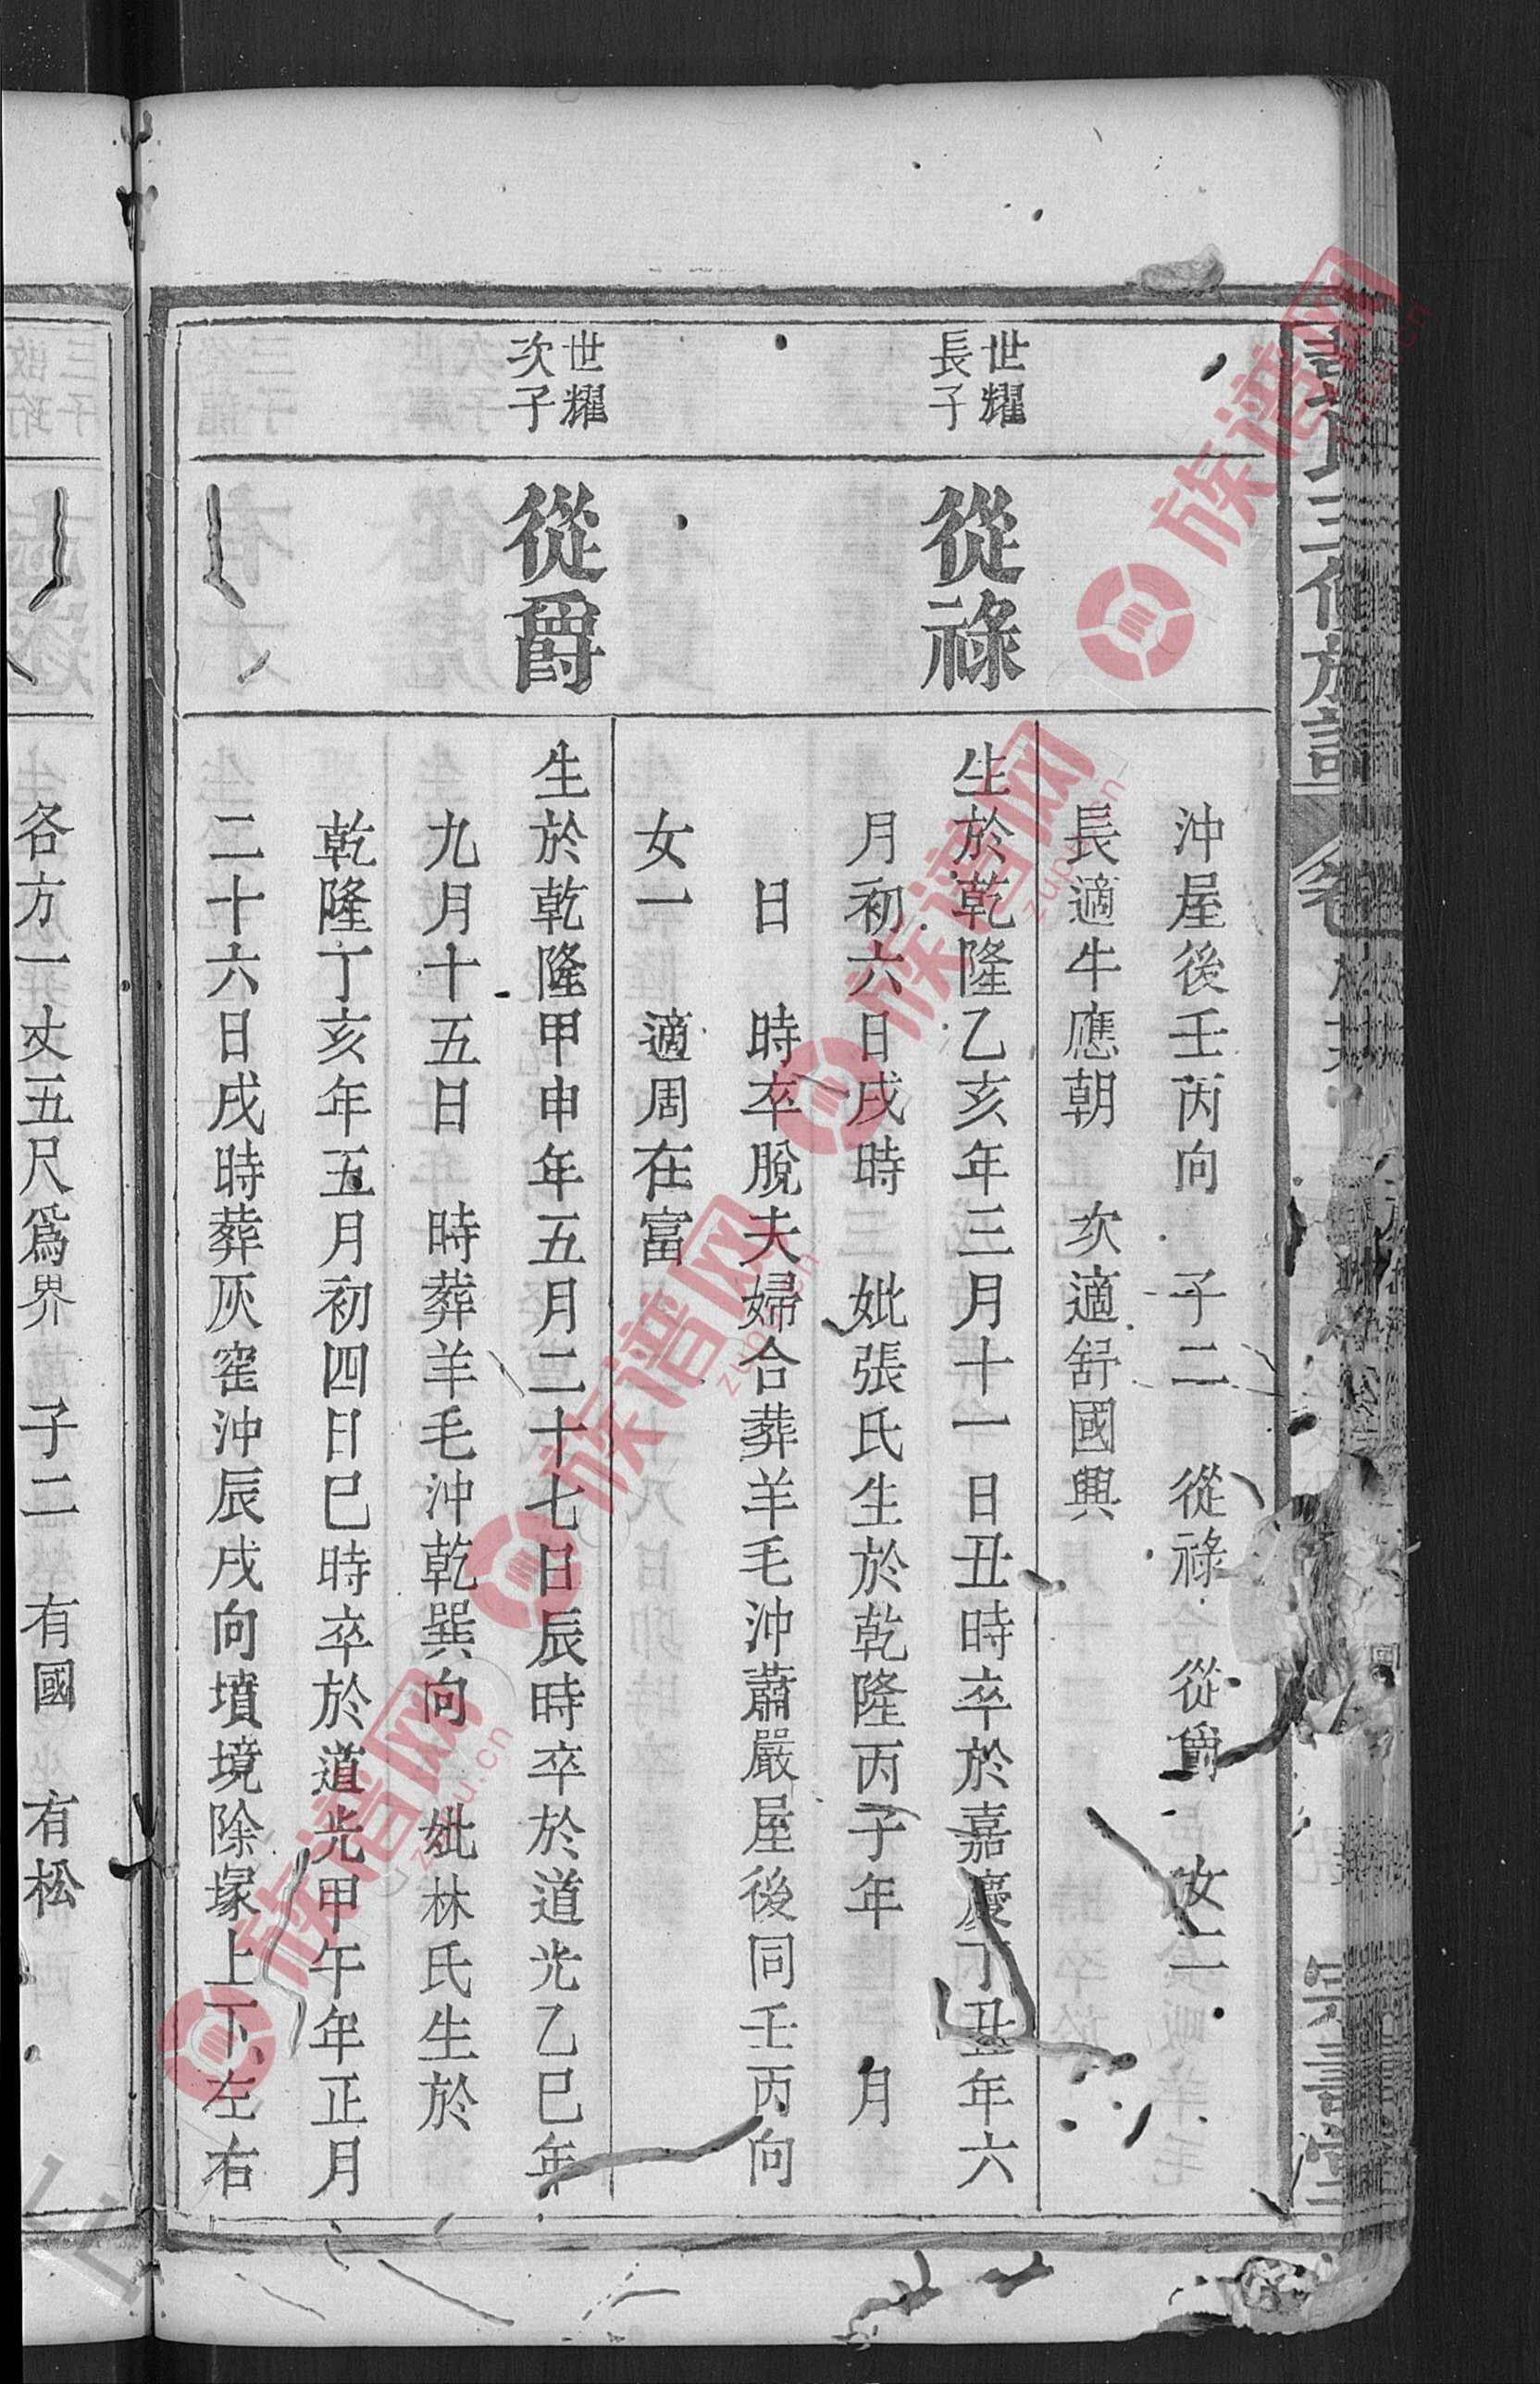 沖屋後壬丙向　子二　從祿　從爵　女二
長適牛應朝　次適舒國興
世耀
長子
從祿
生於乾隆乙亥年三月十一日丑時卒於嘉慶丁丑年六
月初六日戌時　妣張氏生於乾隆丙子年　月
日　時卒脫夫婦合葬羊毛沖蕭嚴屋後同壬丙向
女一　適周在富
世耀
次子
從爵
生於乾隆甲申年五月二十七日辰時卒於道光乙巳年
九月十五日　時葬羊毛沖乾巽向　妣林氏生於
乾隆丁亥年五月初四日巳時卒於道光甲午年正月
二十六日戌時葬灰窑沖辰戌向墳境除塚上下左右
各方一丈五尺爲界　子二　有國　有松
族谱网
zupu.cn